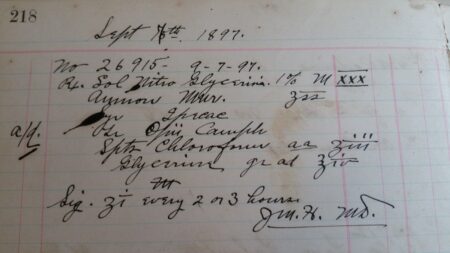 218
Sept 7th 1897.
No 26915- 9-7-97.
Rx. Sol Nitro Glycerin. 1% M xxx
Ammon Mur. ʒss
Ipecac
a/d. Opii Camph
Spts Chloroform aa ʒiii
Glycerine qr ad ʒiv
M
Sig. ʒi every 2 or 3 hours.
J.M.H. MD.